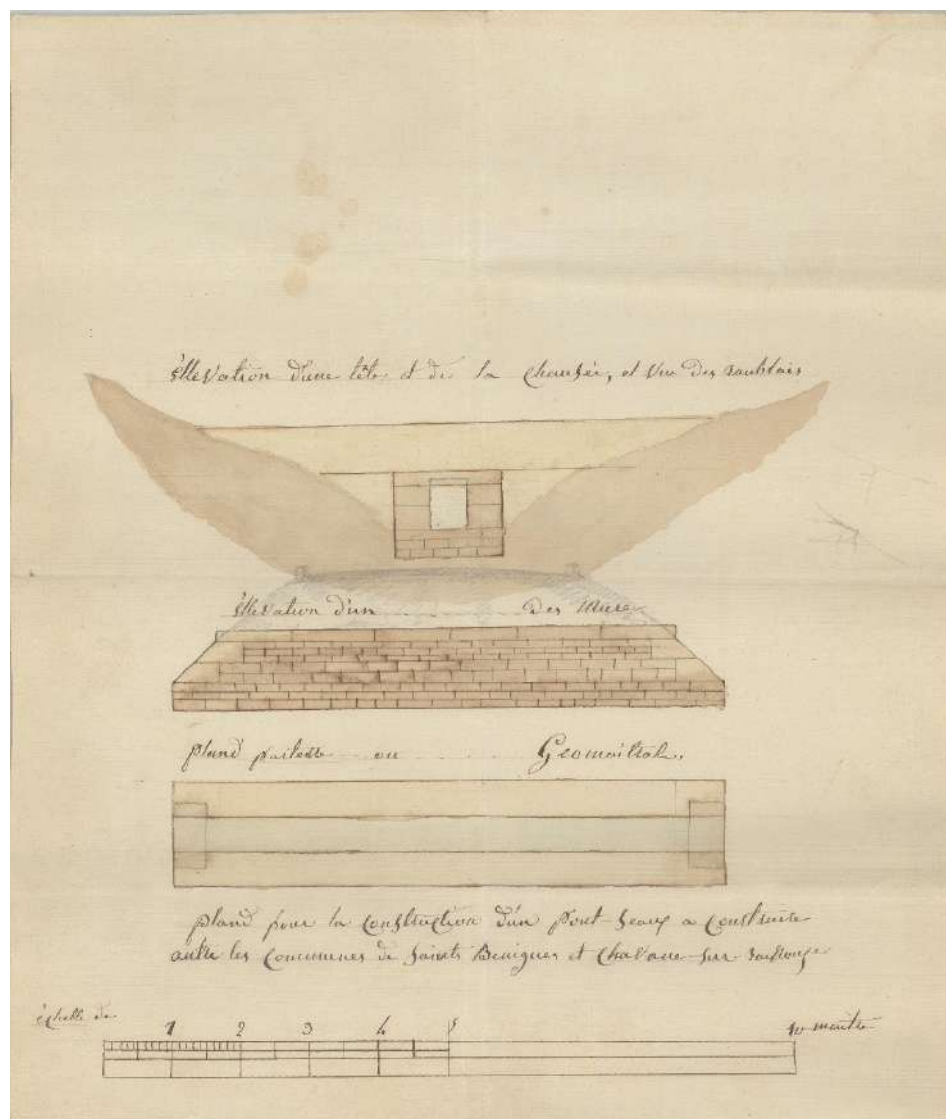 éllevation d'une tête et de la Chausée, et Vue des ramblais
éllevation d'un des Murs
pland ou Geomaitral.
pland pour la Construction d'un pont-Seaux a Construire
antre les Concummes de Saints Benignes et Chavane-sur-
échelle de 1 2 3 4 5 10 maitre